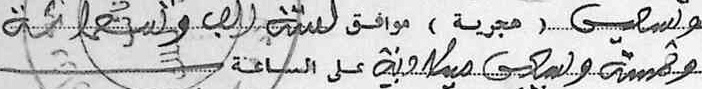 وتسعين ( هجرية ) موافق لسنة الف وتسعمائة
وخمسة وسبعين ميلادية على الساعة